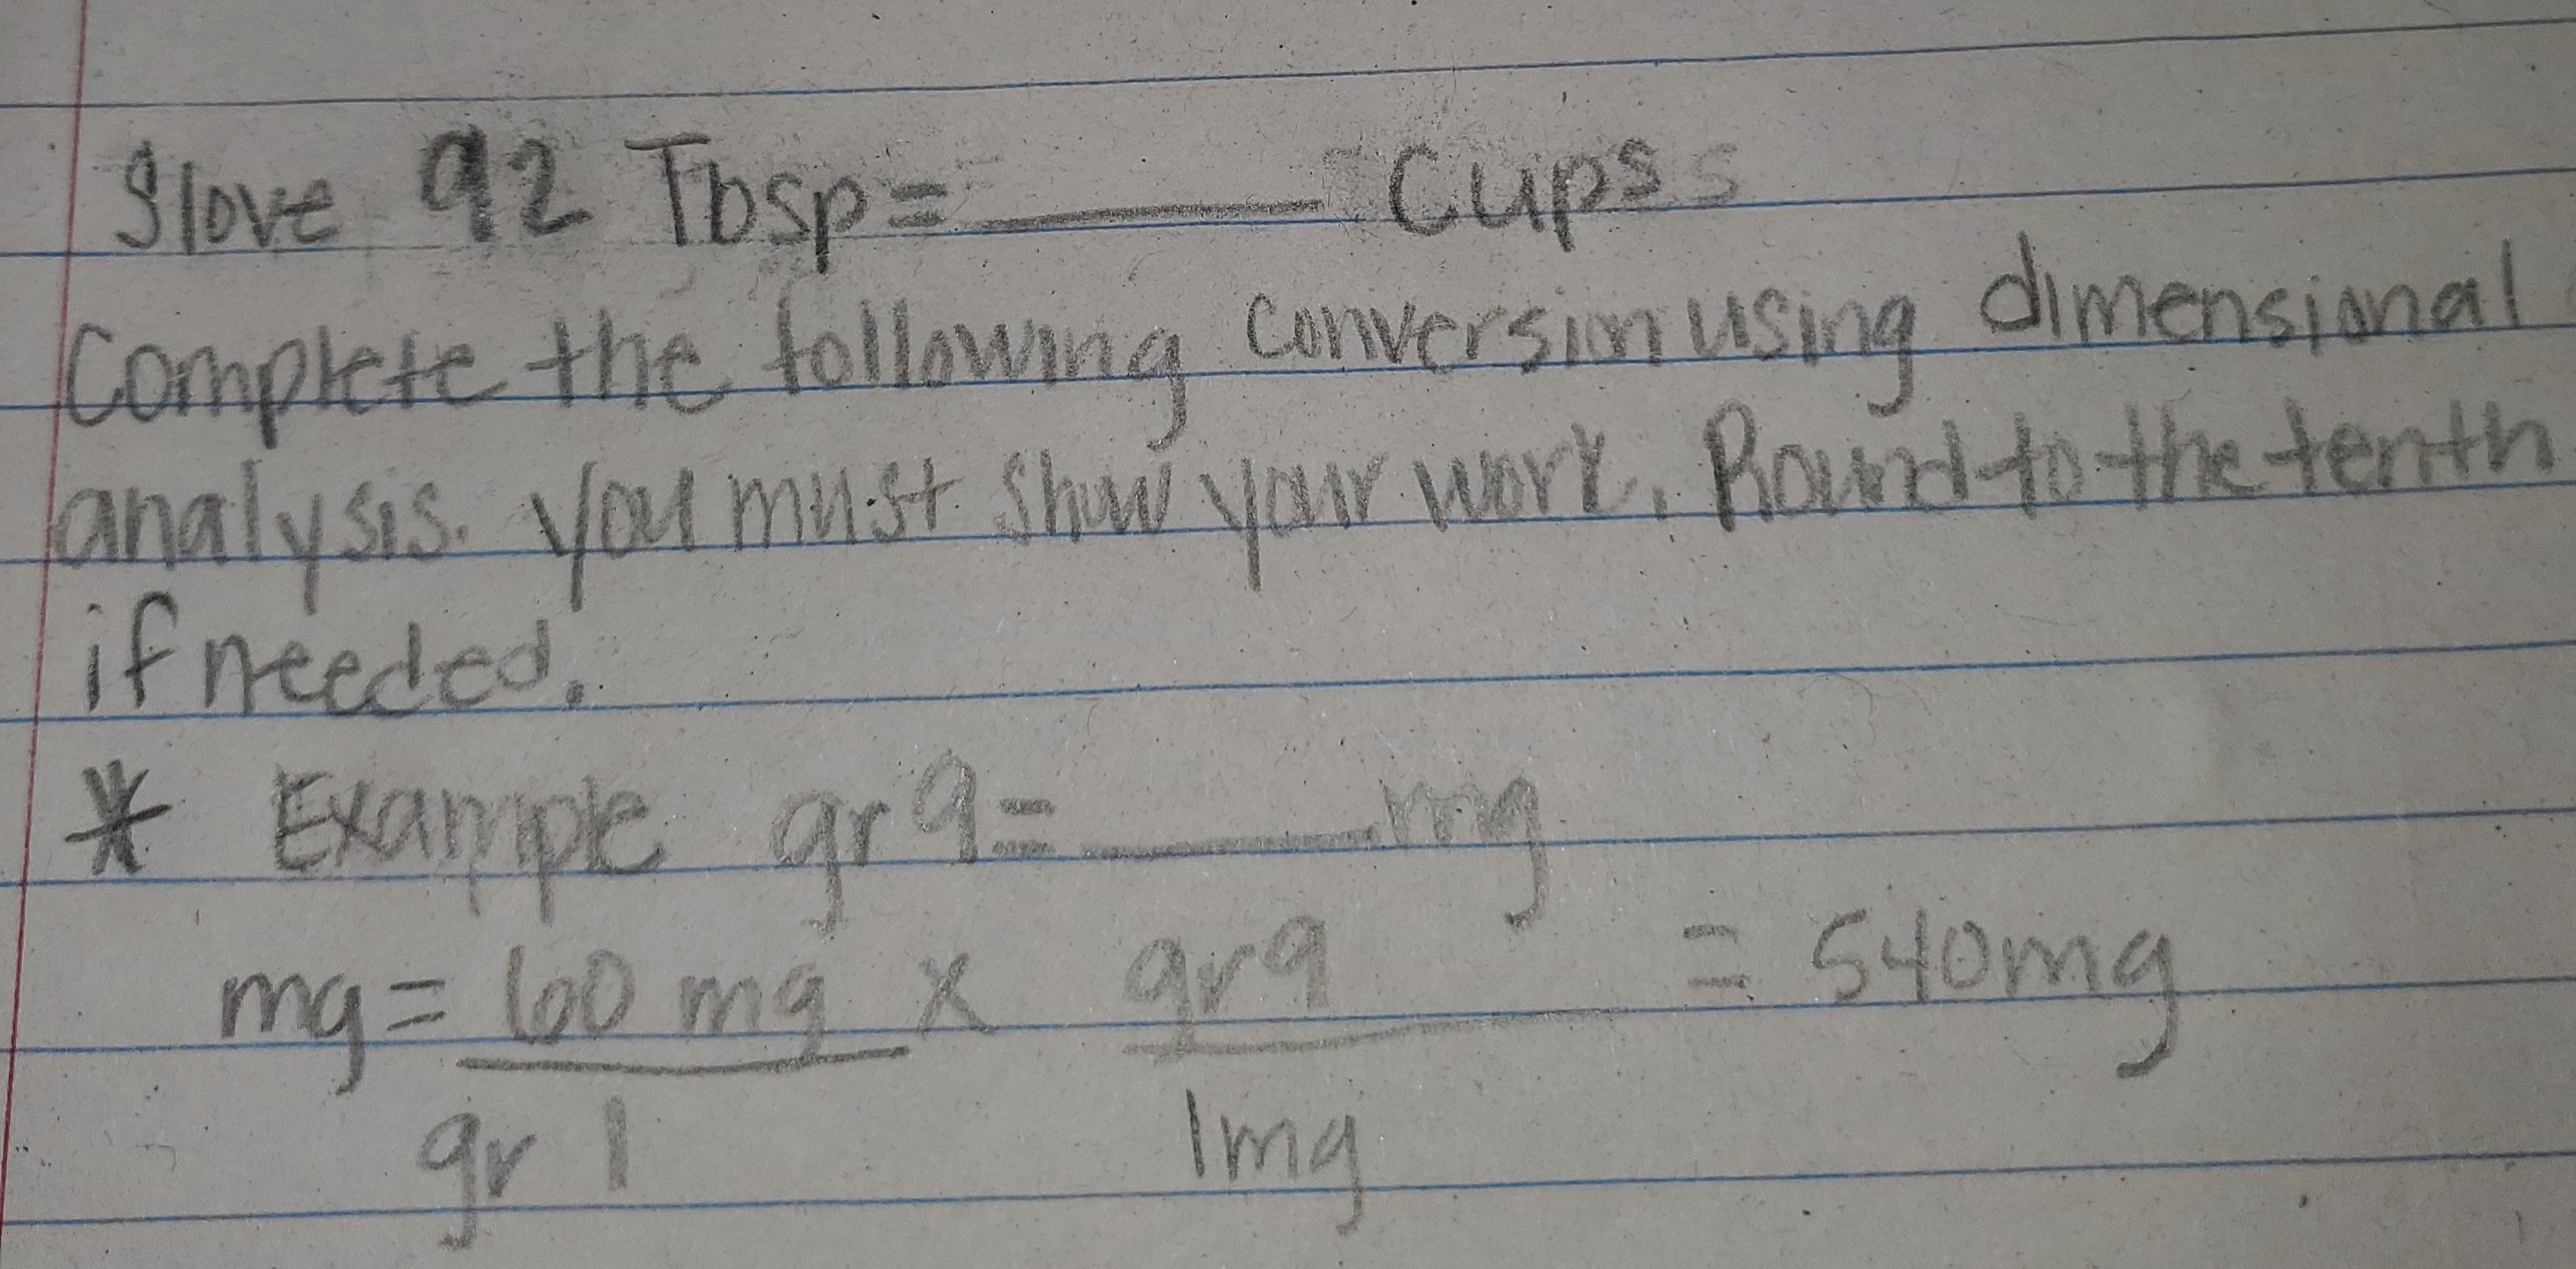 Slove 92 Tbsp= ______ Cupss
Complete the following conversion using dimensional
analysis. You must show your work. Round to the tenth
if needed.
* Example gr 9= ______ mg
mg = 60 mg x gr 9 = 540mg
gr 1 1mg